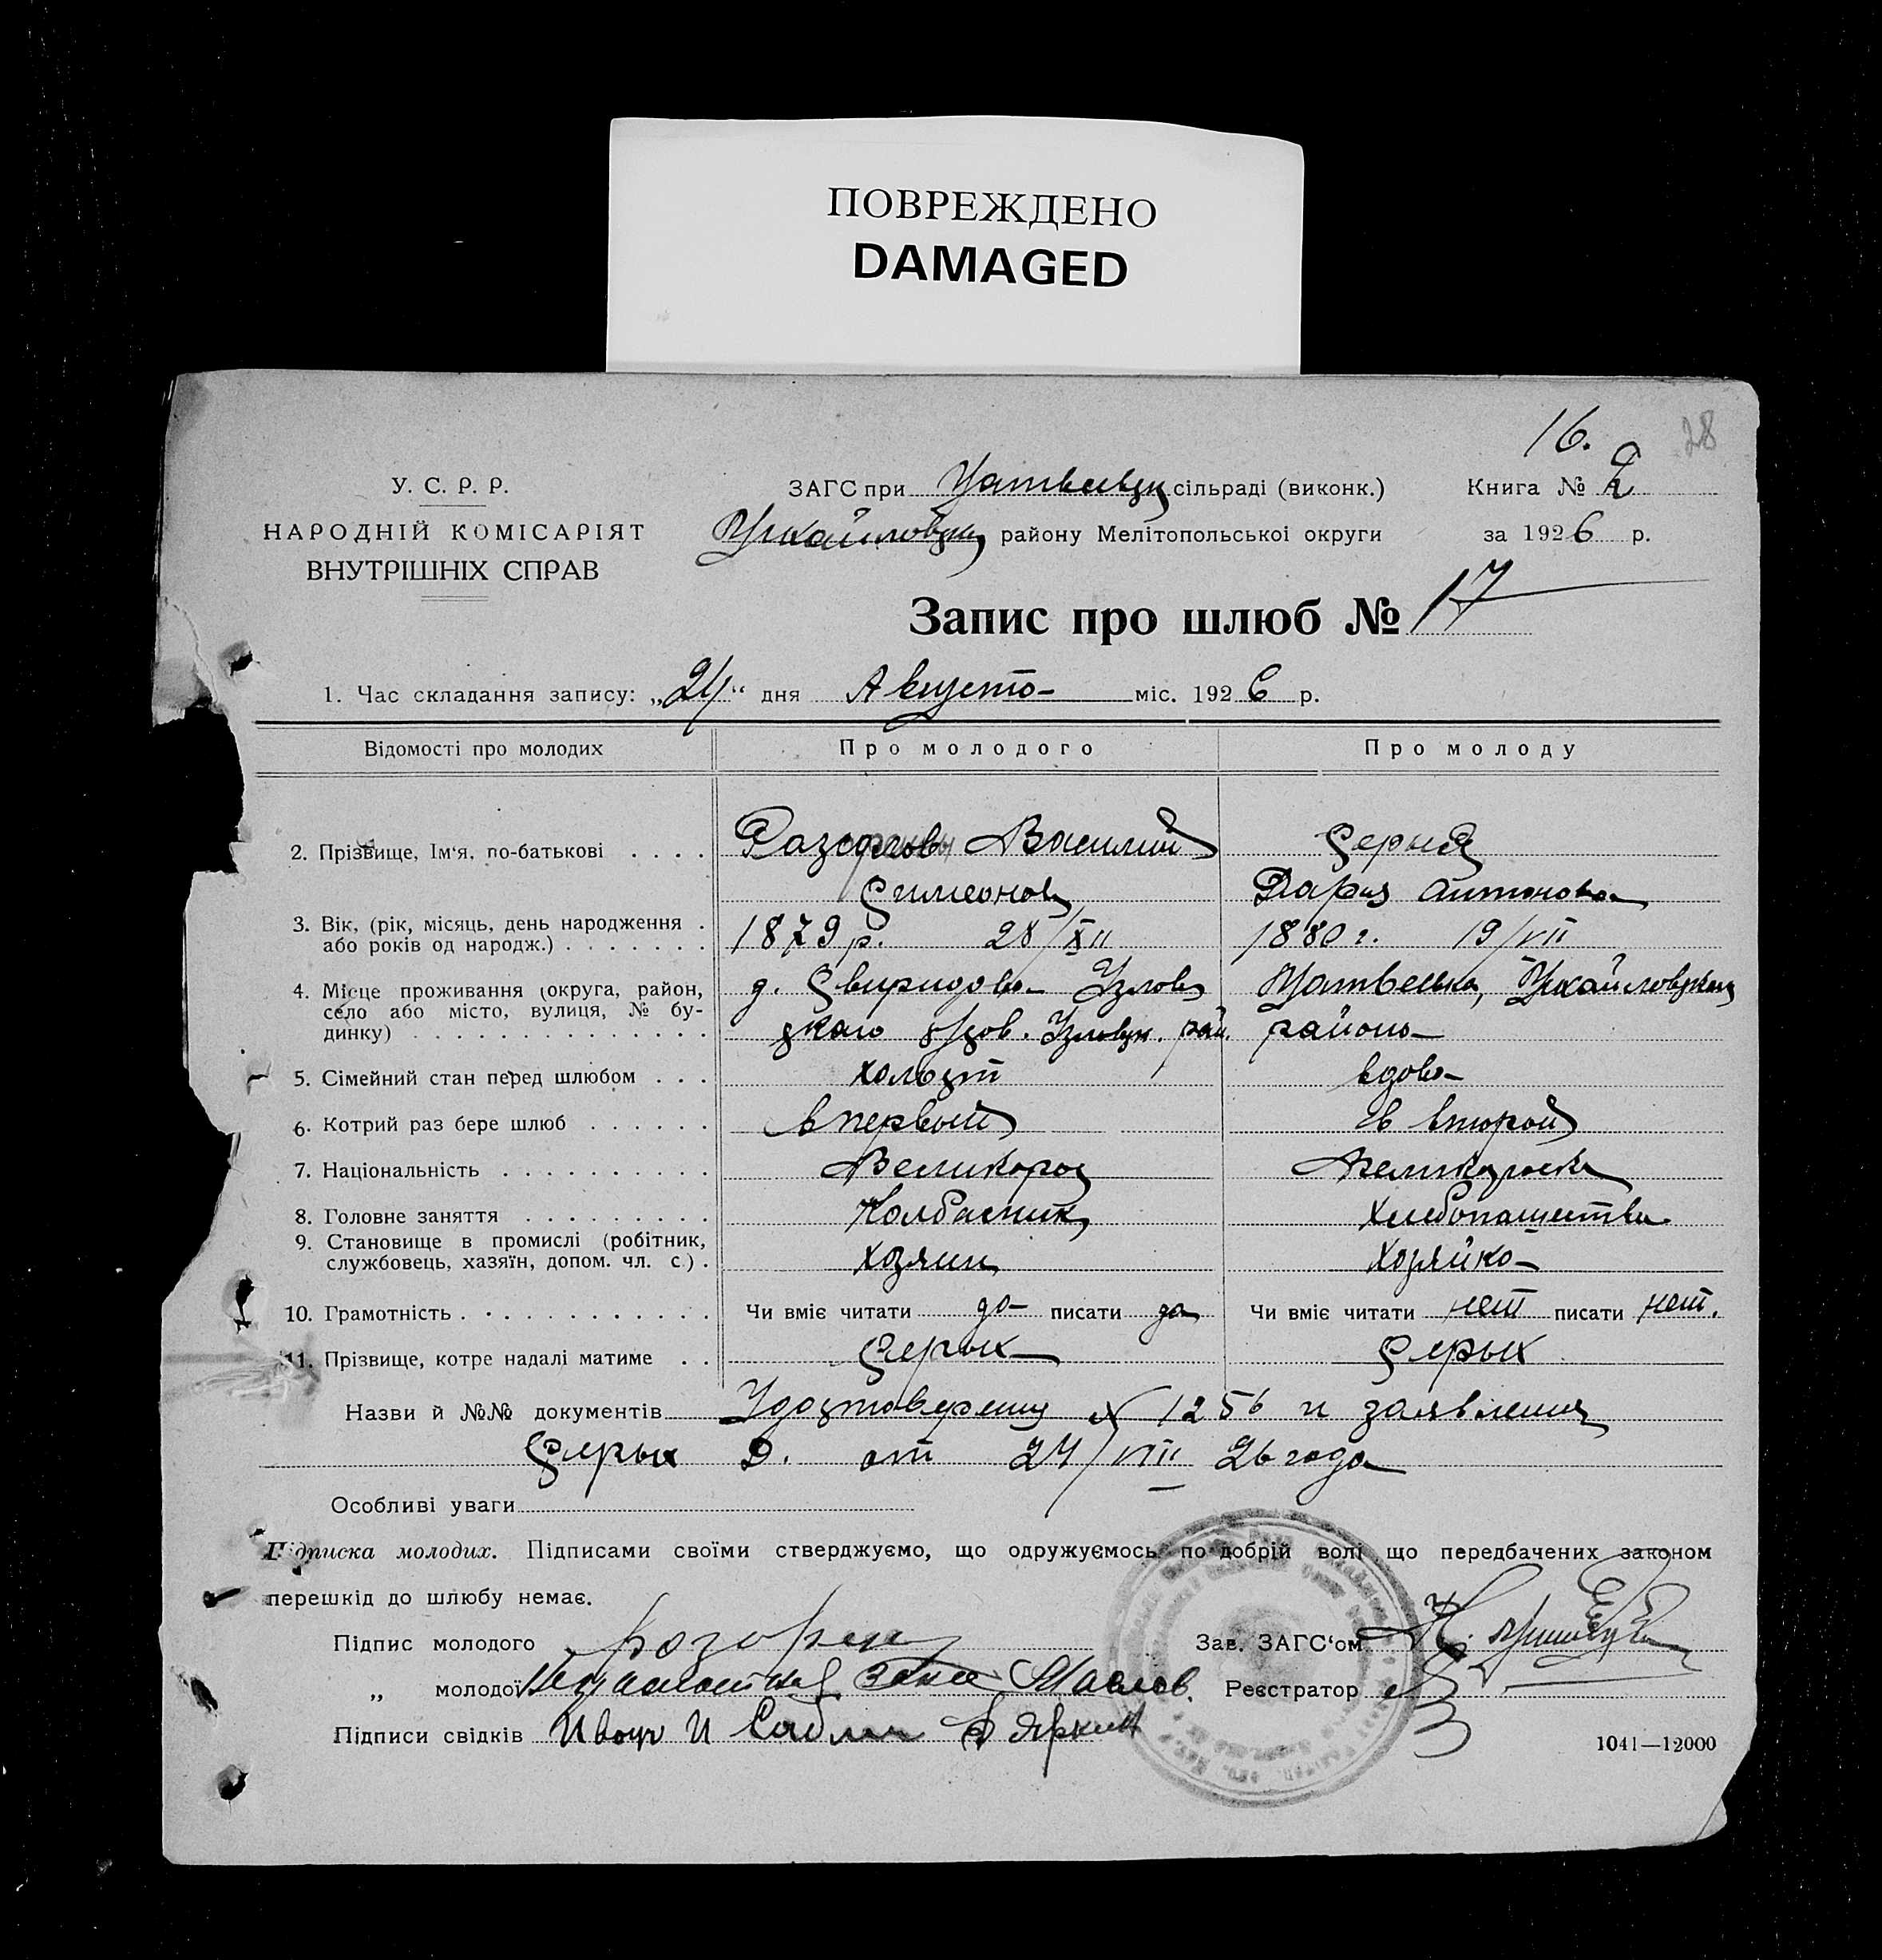 ПОВРЕЖДЕНО
DAMAGED
16.
28
У. С. Р. Р.
ЗАГС при Матвеевск сільраді (виконк.)
Книга № 2
НАРОДНІЙ КОМІСАРІЯТ
Михайловск району Мелітопольської округи
за 1926 р.
ВНУТРІШНІХ СПРАВ
Запис про шлюб № 17
1. Час складання запису: „24“ дня Августа міс. 1926 р.
Відомості про молодих
Про молодого
Про молоду
2. Прізвище, Ім‘я, по-батькові . . . . Василий Серых
Симеонов Дария Антонова
3. Вік, (рік, місяць, день народження . 1879 р. 28/XII 1880 г. 19/VII
або років од народж.) . . . . . . .
4. Місце проживання (округа, район, д. Свиридово Узлов Матвеевка, Михайловского
село або місто, вулиця, № бу- скаго Узловск. рай. района
динку) . . . . . . . . . . . . . .
5. Сімейний стан перед шлюбом . . . холост вдова
6. Котрий раз бере шлюб . . . . . . впервый в второй
7. Національність . . . . . . . . . . Великорос Великороска
8. Головне заняття . . . . . . . . . Колбасник хлебопашество
9. Становище в промислі (робітник,
службовець, хазяїн, допом. чл. с.) . хозяин хозяйка
10. Грамотність . . . . . . . . . . . Чи вміє читати да писати да Чи вміє читати нет писати нет.
11. Прізвище, котре надалі матиме . . Серых Серых
Назви й №№ документів Удостоверения № 1256 и заявления
Серых Д. от 24/VIII 26 года
Особливі уваги
Підписка молодих. Підписами своїми стверджуємо, що одружуємось по добрій волі що передбачених законом
перешкід до шлюбу немає.
Підпис молодого
Зав. ЗАГС‘ом
„ молодої Неграмотная за нее Павлов.
Реєстратор
Підписи свідків
1041—12000